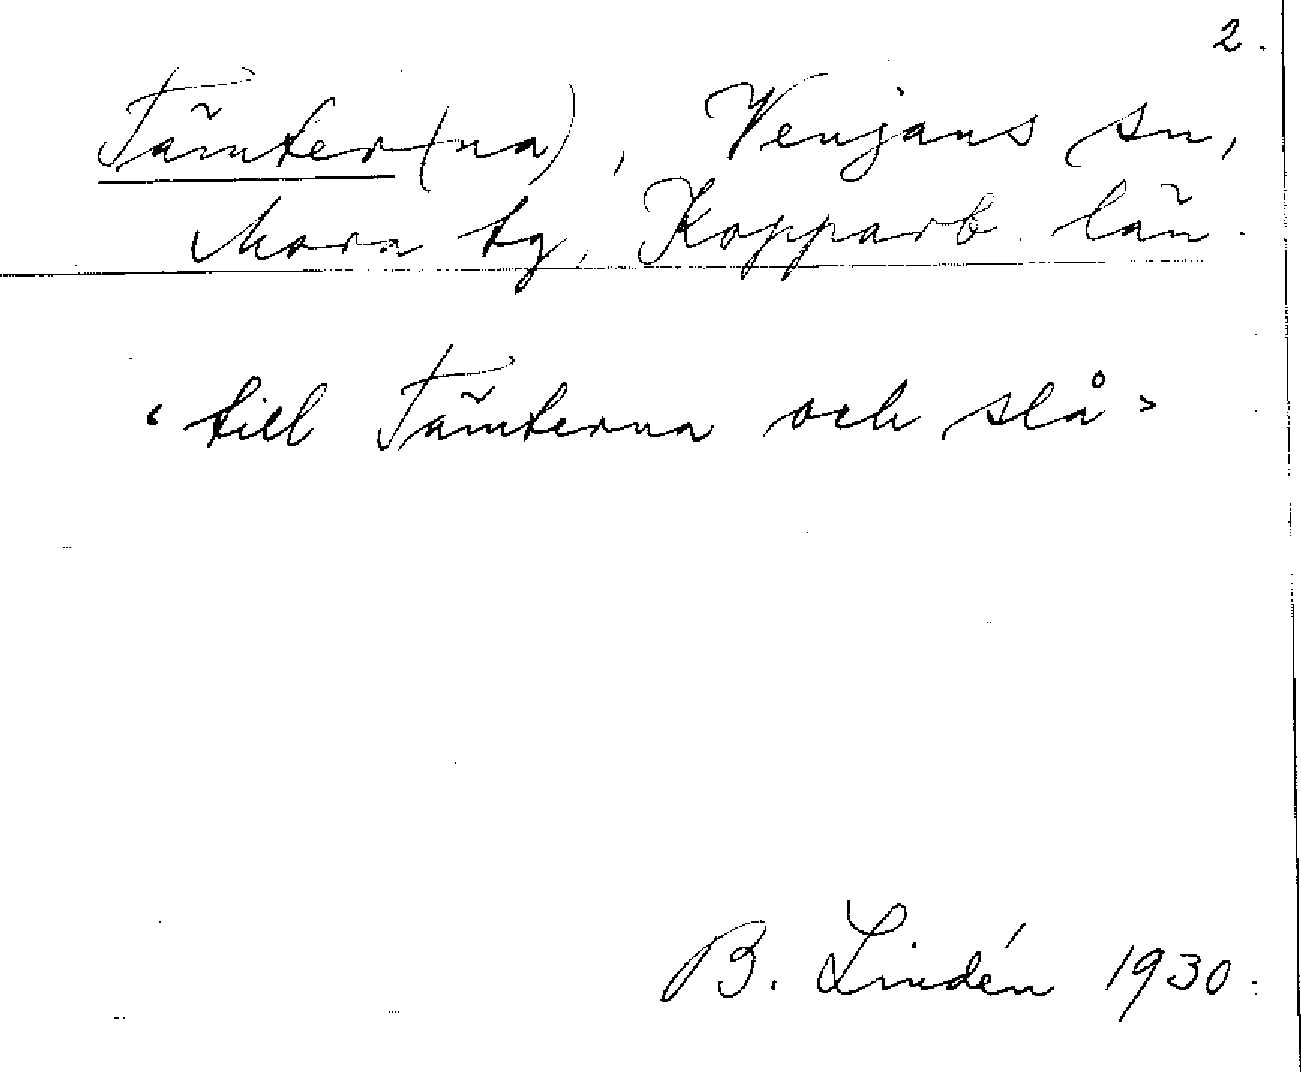 2.
Tämter(na), Venjans sn,
Mora tg, Kopparb. län.
‹ till Tämterna och slå ›
B. Lindén 1930.